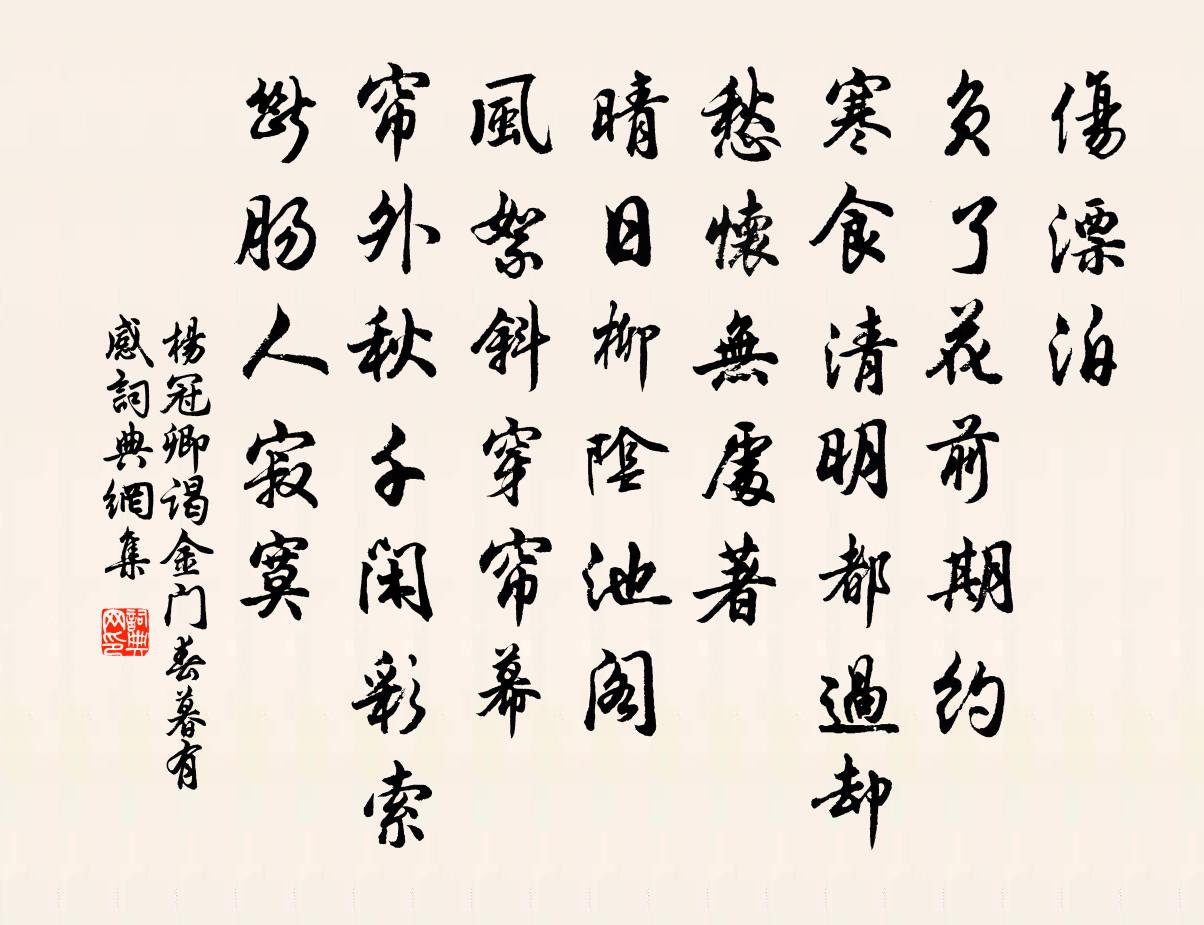 傷漂泊
負了花前期約
寒食清明都過却
愁懷無處著
晴日柳陰池閣
風絮斜穿帘幕
帘外秋千闲彩索
斷肠人寂寞
楊冠卿谒金门春暮有
感詞典網集
詞典
网印